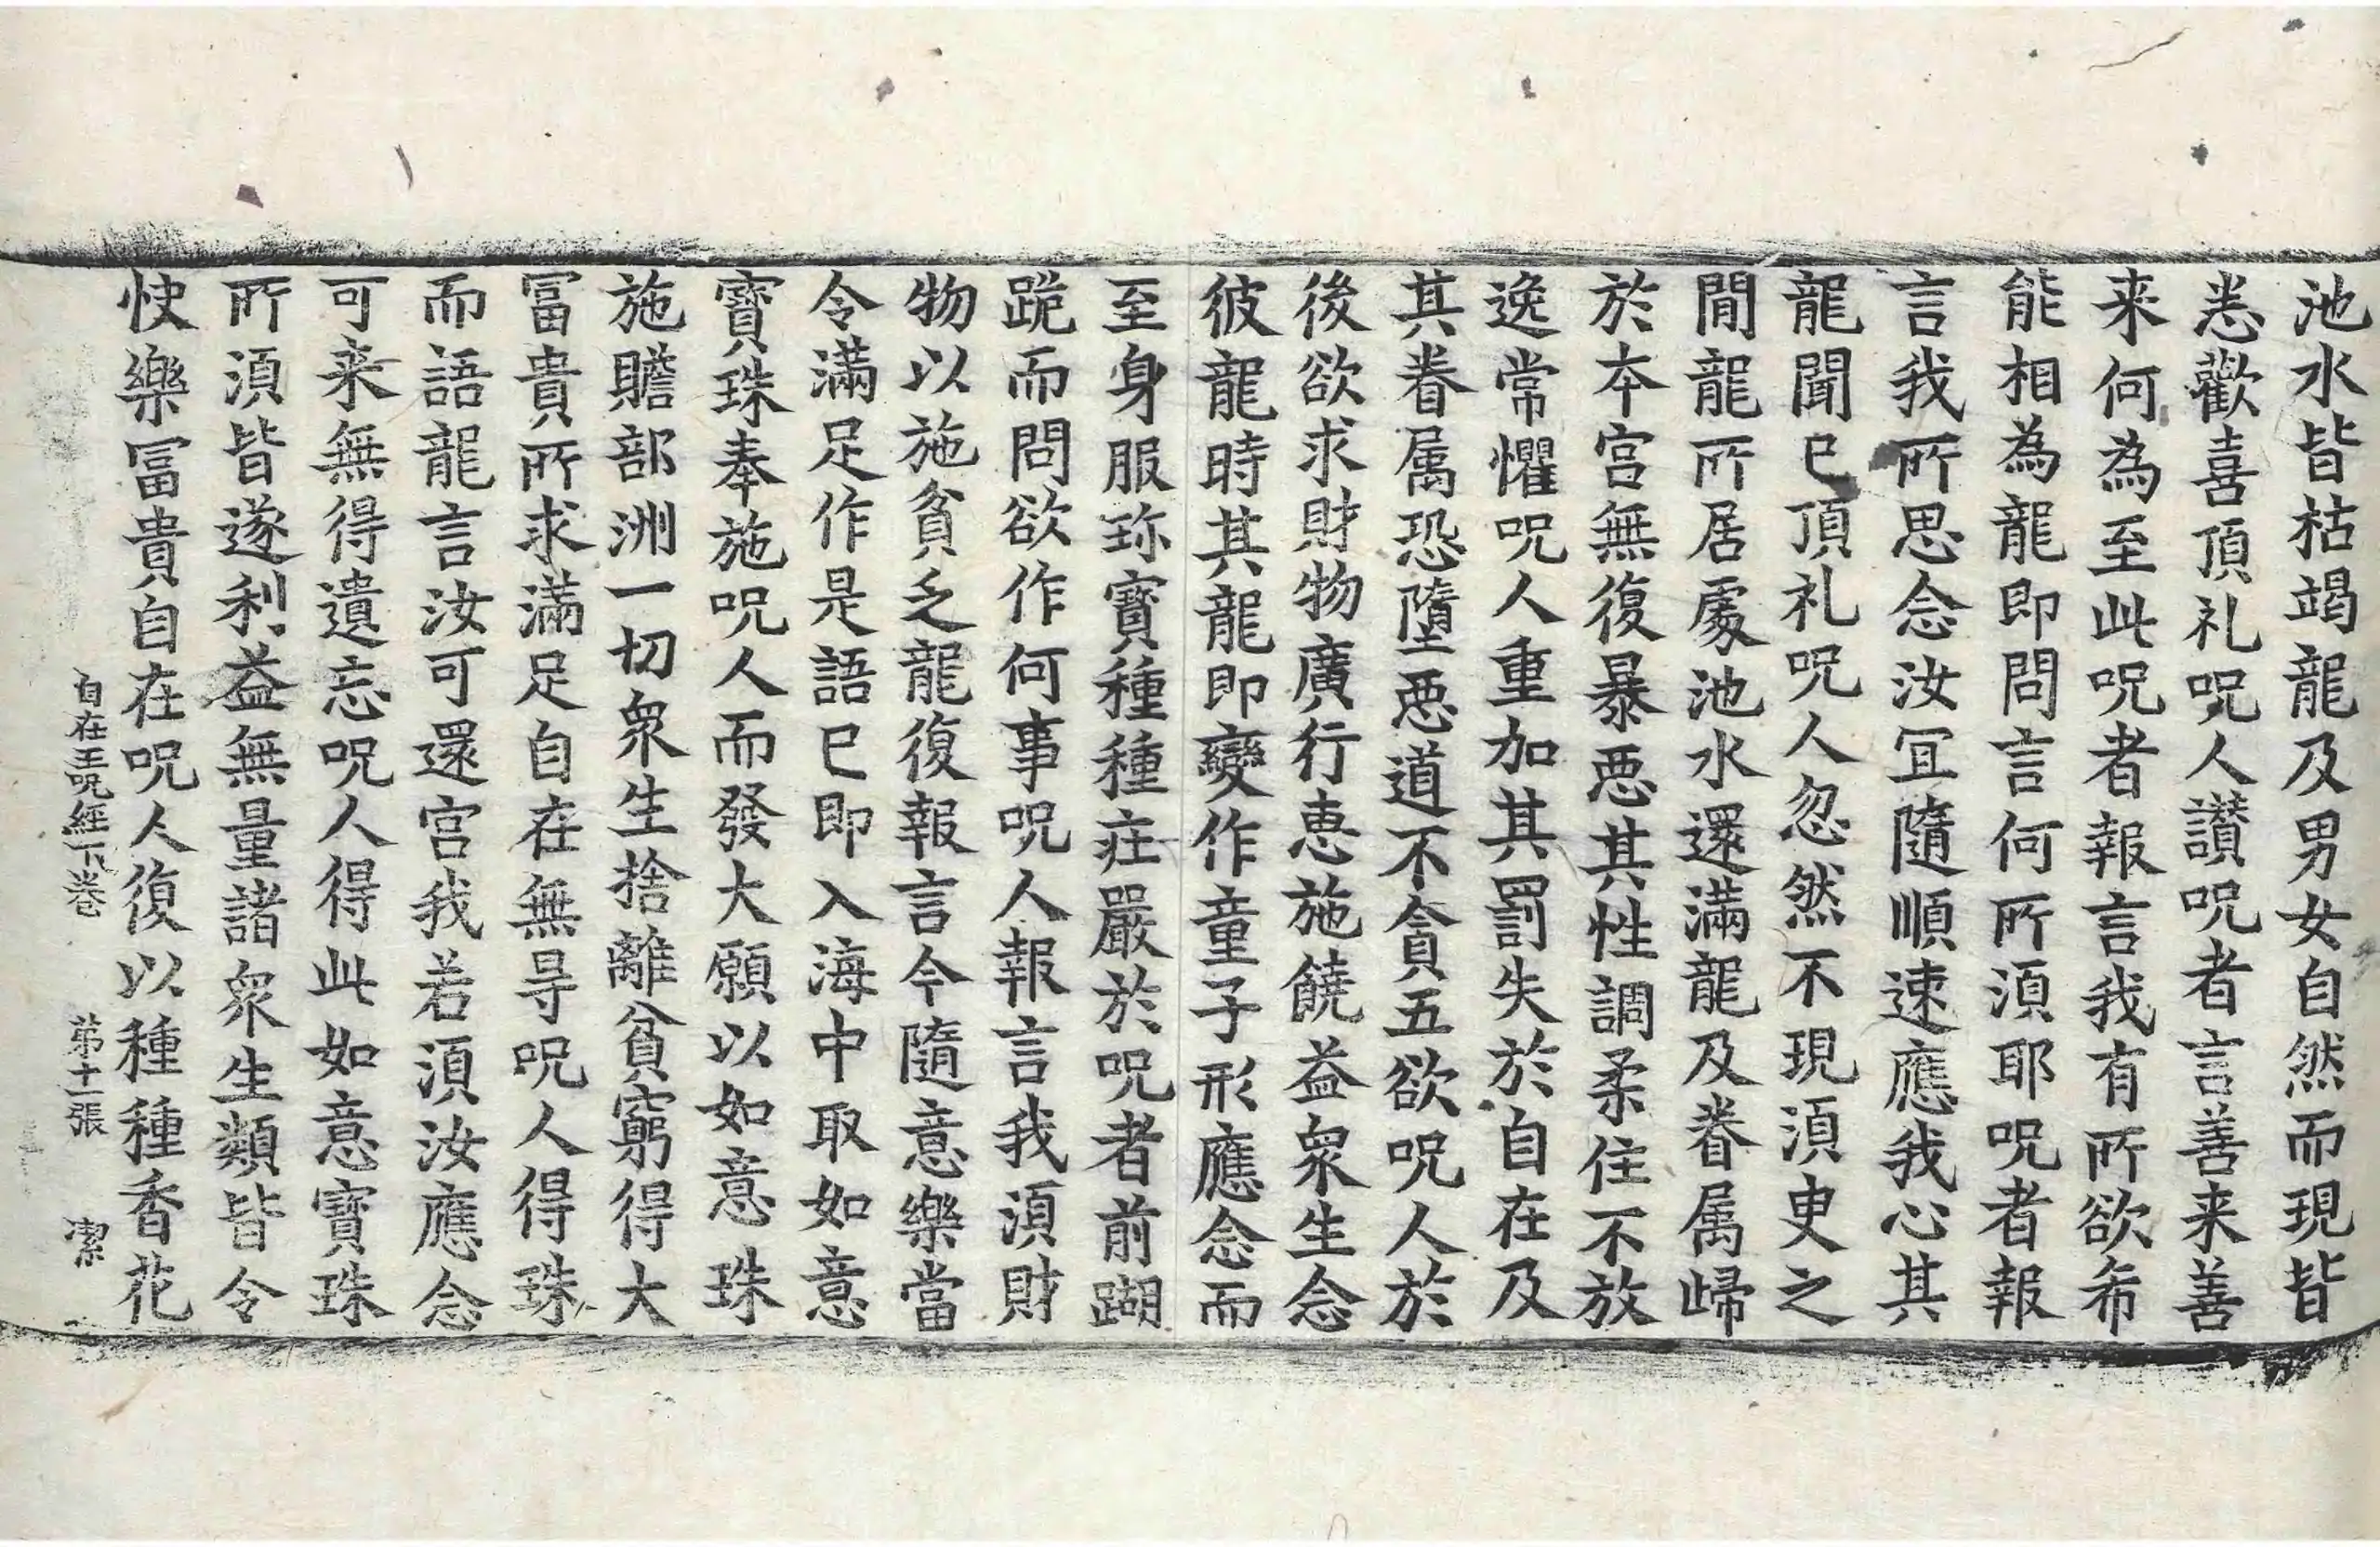 池水皆枯竭龍及男女自然而現皆
悉歡喜頂礼呪人讃呪者言善来善
来何為至此呪者報言我有所欲希
能相為龍即問言何所湏耶呪者報
言我所思念汝冝隨順速應我心其
龍聞已頂礼呪人忽然不現湏臾之
閒龍所居處池水還滿龍及眷属歸
於本宮無復暴惡其性調柔住不放
逸常懼呪人重加其罰失於自在及
其眷属恐墮惡道不貪五欲呪人於
後欲求財物廣行恵施饒益衆生念
彼龍時其龍即變作童子形應念而
至身服珎寳種種庄嚴於呪者前蹦
跪而問欲作何事呪人報言我湏財
物以施貧乏龍復報言今隨意樂當
令滿足作是語已即入海中取如意
寳珠奉施呪人而發大願以如意珠
施贍部洲一切衆生捨離貧窮得大
冨貴所求滿足自在無㝵呪人得珠
而語龍言汝可還宮我若湏汝應念
可来無得遺忘呪人得此如意寳珠
所湏皆遂利益無量諸衆生類皆令
快樂冨貴自在呪人復以種種香花
自在王呪經下卷 苐十一張 㓗